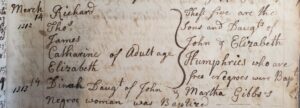 March Richard
14 Thos
James
Catharine of Adult age
Elizabeth
These five are the
Sons and Daugts of
John & Elizabeth
Humphries who are
free Negroes were Bapt
14 Dinah Daugt of John & Martha Gibbs
Negroe woman was Baptized